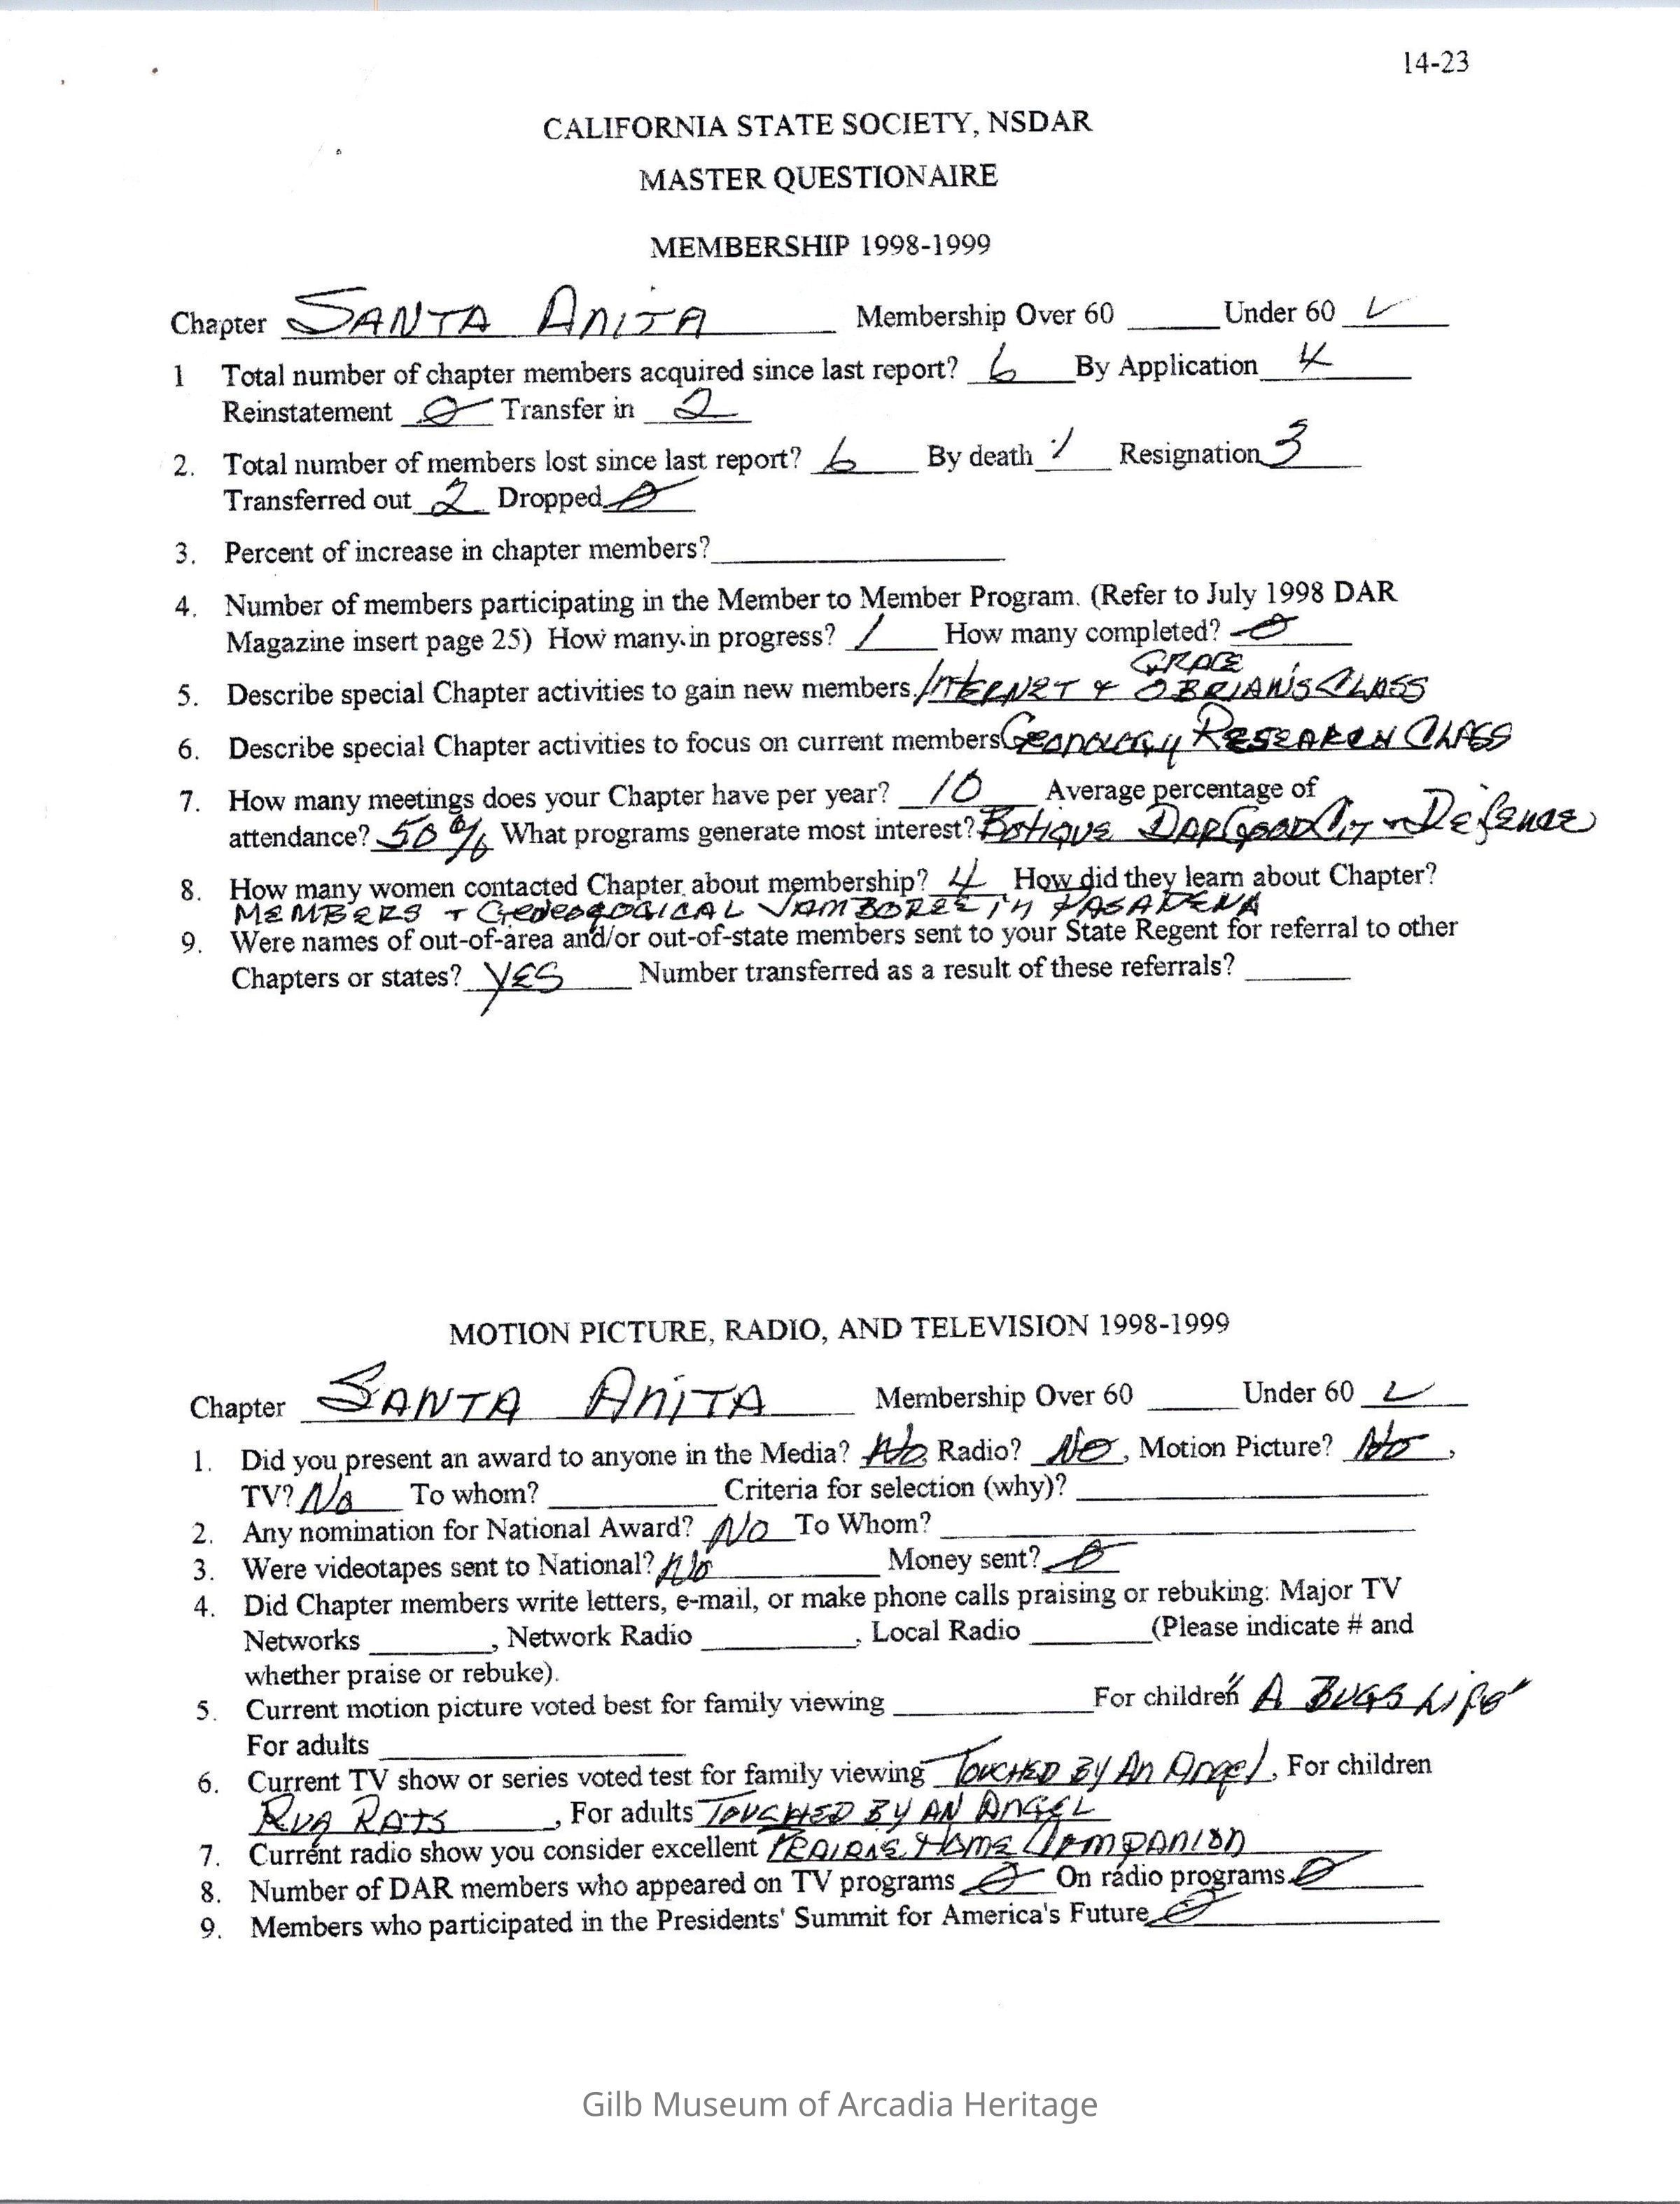 14-23
CALIFORNIA STATE SOCIETY, NSDAR
MASTER QUESTIONAIRE
MEMBERSHIP 1998-1999
Chapter SANTA ANITA Membership Over 60 ______ Under 60 ✓
1 Total number of chapter members acquired since last report? 6 By Application 4
Reinstatement 0 Transfer in 2
2. Total number of members lost since last report? 6 By death 1 Resignation 3
Transferred out 2 Dropped 0
3. Percent of increase in chapter members? ______
4. Number of members participating in the Member to Member Program. (Refer to July 1998 DAR
Magazine insert page 25) How many in progress? 1 How many completed? 0
GRACE
5. Describe special Chapter activities to gain new members. INTERNET & OBRIAN'S CLASS
6. Describe special Chapter activities to focus on current members RESEARCH CLASS
7. How many meetings does your Chapter have per year? 10 Average percentage of
attendance? 50% What programs generate most interest? Botique DAR & Defense
8. How many women contacted Chapter about membership? 4 How did they learn about Chapter?
MEMBERS + JAMBOREE IN PASADENA
9. Were names of out-of-area and/or out-of-state members sent to your State Regent for referral to other
Chapters or states? YES Number transferred as a result of these referrals? ______
MOTION PICTURE, RADIO, AND TELEVISION 1998-1999
Chapter SANTA ANITA Membership Over 60 ______ Under 60 ✓
1. Did you present an award to anyone in the Media? No Radio? No, Motion Picture? No,
TV? No To whom? ______ Criteria for selection (why)? ______
2. Any nomination for National Award? No To Whom? ______
3. Were videotapes sent to National? No Money sent? 0
4. Did Chapter members write letters, e-mail, or make phone calls praising or rebuking: Major TV
Networks ______, Network Radio ______, Local Radio ______ (Please indicate # and
whether praise or rebuke).
5. Current motion picture voted best for family viewing ______ For children "A BUGS Life"
For adults ______
6. Current TV show or series voted test for family viewing TOUCHED By An Angel, For children
RUG RATS, For adults TOUCHED BY AN ANGEL
7. Current radio show you consider excellent PRAIRIE Home COMPANION
8. Number of DAR members who appeared on TV programs 0 On radio programs 0
9. Members who participated in the Presidents' Summit for America's Future 0
Gilb Museum of Arcadia Heritage